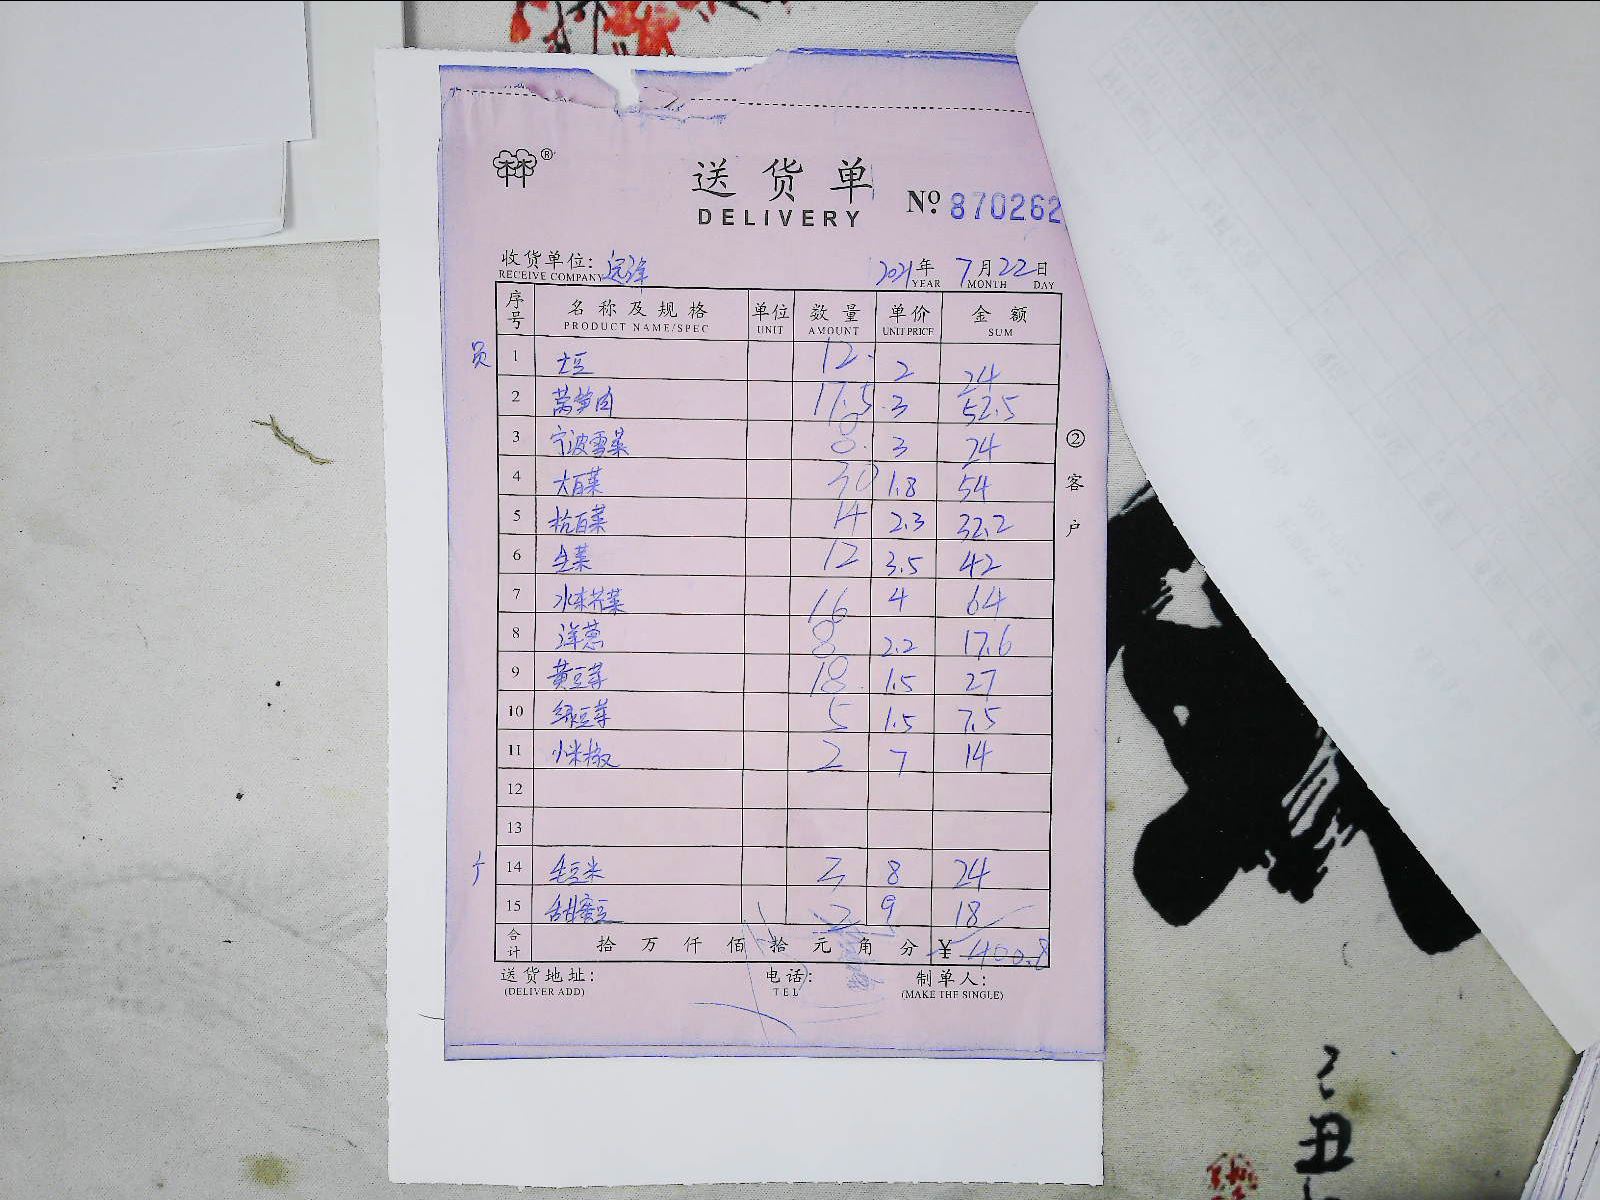 ®
送货单
DELIVERY
Nº. 870262
收货单位:
RECEIVE COMPANY
2021年 7月22日
YEAR MONTH DAY
序号 名称及规格 单位 数量 单价 金额
PRODUCT NAME/SPEC UNIT AMOUNT UNIT PRICE SUM
员 1 土豆 12. 2 24
2 莴笋肉 17.5 3 52.5
3 宁波雪菜 8. 3 24
4 大白菜 30 1.8 54
5 杭白菜 14 2.3 32.2
6 生菜 12 3.5 42
7 水东芥菜 16 4 64
8 洋葱 8 2.2 17.6
9 黄豆芽 18. 1.5 27
10 绿豆芽 5 1.5 7.5
11 小米椒 2 7 14
12
13
14 毛豆米 3 8 24
15 甜蜜豆 2 9 18
合计 拾万仟佰拾元角分 ¥ 400.8
送货地址: 电话: 制单人:
(DELIVER ADD) TEL (MAKE THE SINGLE)
②客户
己丑